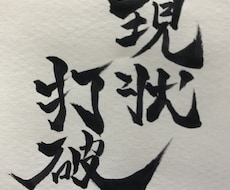 現状
打破